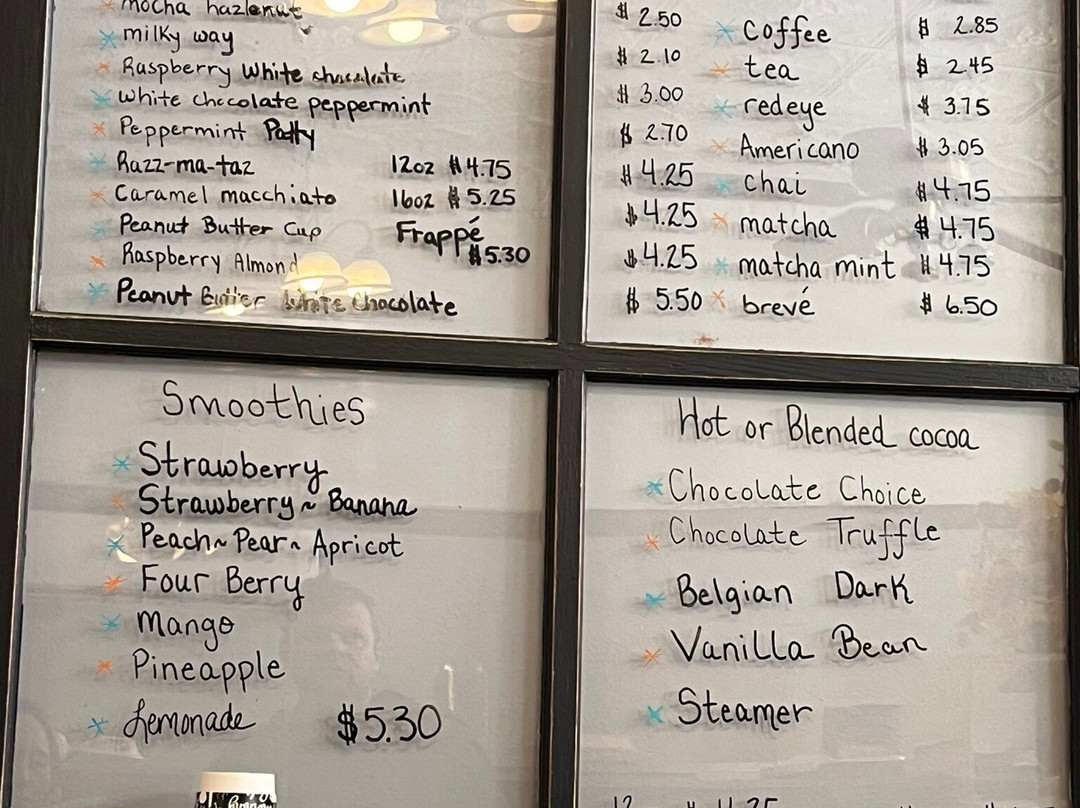 mocha hazlenut
milky way
Raspberry White chocolate
White chocolate peppermint
Peppermint Patty
Razz-ma-taz 12oz $4.75
Caramel macchiato 16oz $5.25
Peanut Butter Cup Frappé
$5.30
Raspberry Almond
Peanut Butter White Chocolate
$ 2.50 Coffee $ 2.85
$ 2.10 tea $ 2.45
$ 3.00 redeye $ 3.75
$ 2.70 Americano $ 3.05
$ 4.25 chai $ 4.75
$ 4.25 matcha $ 4.75
$ 4.25 matcha mint $ 4.75
$ 5.50 brevé $ 6.50
Smoothies
Strawberry
Strawberry ~ Banana
Peach ~ Pear ~ Apricot
Four Berry
Mango
Pineapple
Lemonade $5.30
Hot or Blended cocoa
Chocolate Choice
Chocolate Truffle
Belgian Dark
Vanilla Bean
Steamer